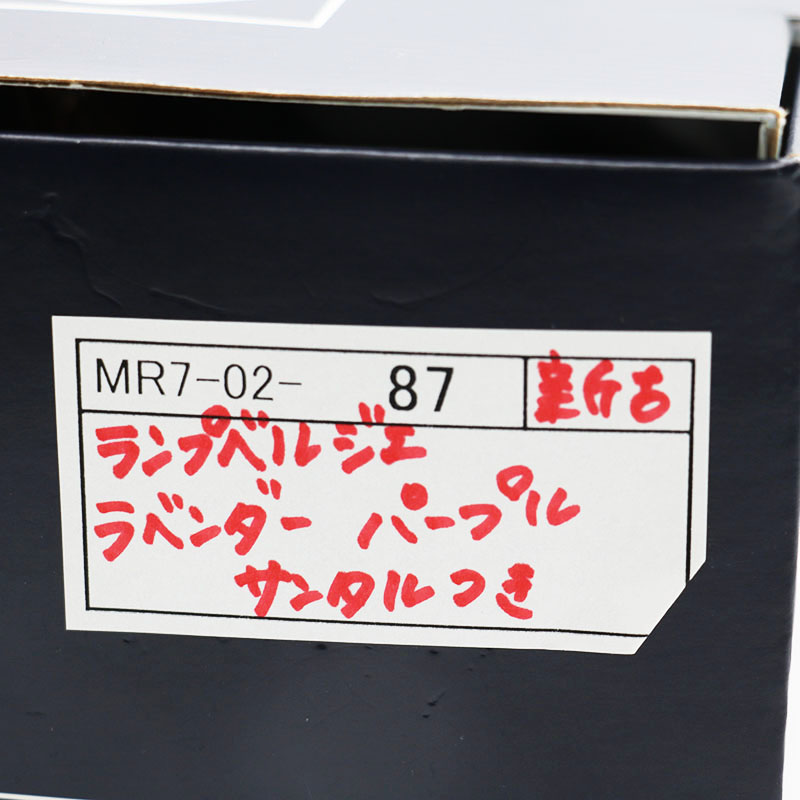 MR7-02- 87 新古
ランプベルジェ
ラベンダー パープル
サンタルつき